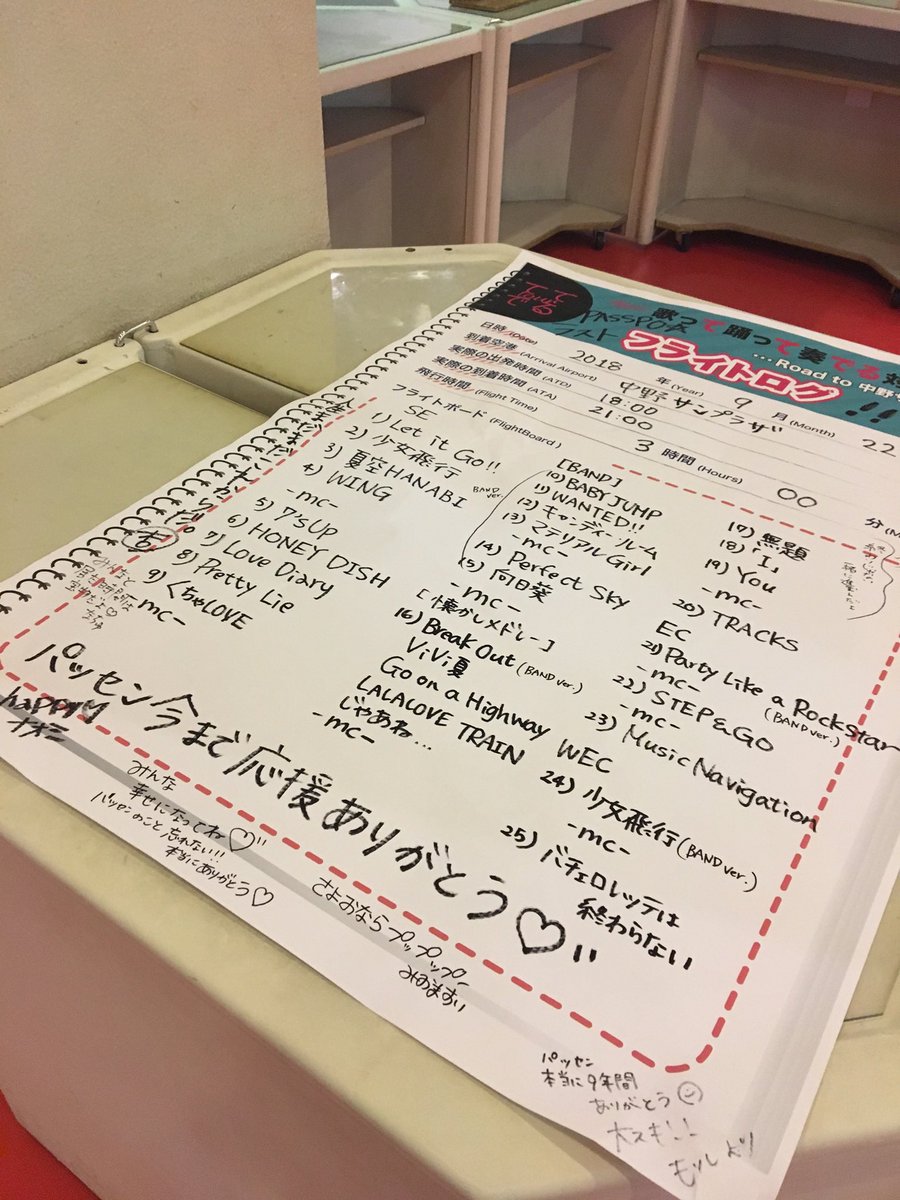 歌って踊って奏でる
... Road to 中野サ
PASSPO☆
フライトログ!!
日時 (Date) 2018 年 (Year) 9 月 (Month) 22
到着空港 (Arrival Airport) 中野サンプラザ
実際の出発時間 (ATD) 18:00
実際の到着時間 (ATA) 21:00
飛行時間 (Flight Time) 3 時間 (Hours) 00 分
フライトボード (FlightBoard)
SE
1) Let it Go!!
2) 少女飛行
3) 夏空HANABI BAND ver.
4) WING
-mc-
5) 7'sUP
6) HONEY DISH
7) Love Diary
8) Pretty Lie
9) くちゃLOVE
-mc-
[BAND]
10) BABY JUMP
11) WANTED!!
12) キャンディー・ルーム
13) マテリアルGirl
-mc-
14) Perfect Sky
15) 向日葵
-mc-
[懐かしメドレー]
16) Break Out (BAND ver.)
ViVi夏
Go on a Highway
LALALOVE TRAIN
じゃあね...
-mc-
17) 無題
18) 「I」
19) You
-mc-
20) TRACKS
EC
21) Party Like a Rockstar (BAND ver.)
-mc-
22) STEP&GO
-mc-
23) Music Navigation
WEC
24) 少女飛行 (BAND ver.)
-mc-
25) バチェロレッテは
終わらない
みんなと
宝物だよ♡
パッセン今まで応援ありがとう♡
みんな
幸せになってね♡
パッセンのこと忘れない!!
本当にありがとう♡
さよおならプップップ〜
みおますい
パッセン
本当に9年間
ありがとう
大スキ!!
もりしより